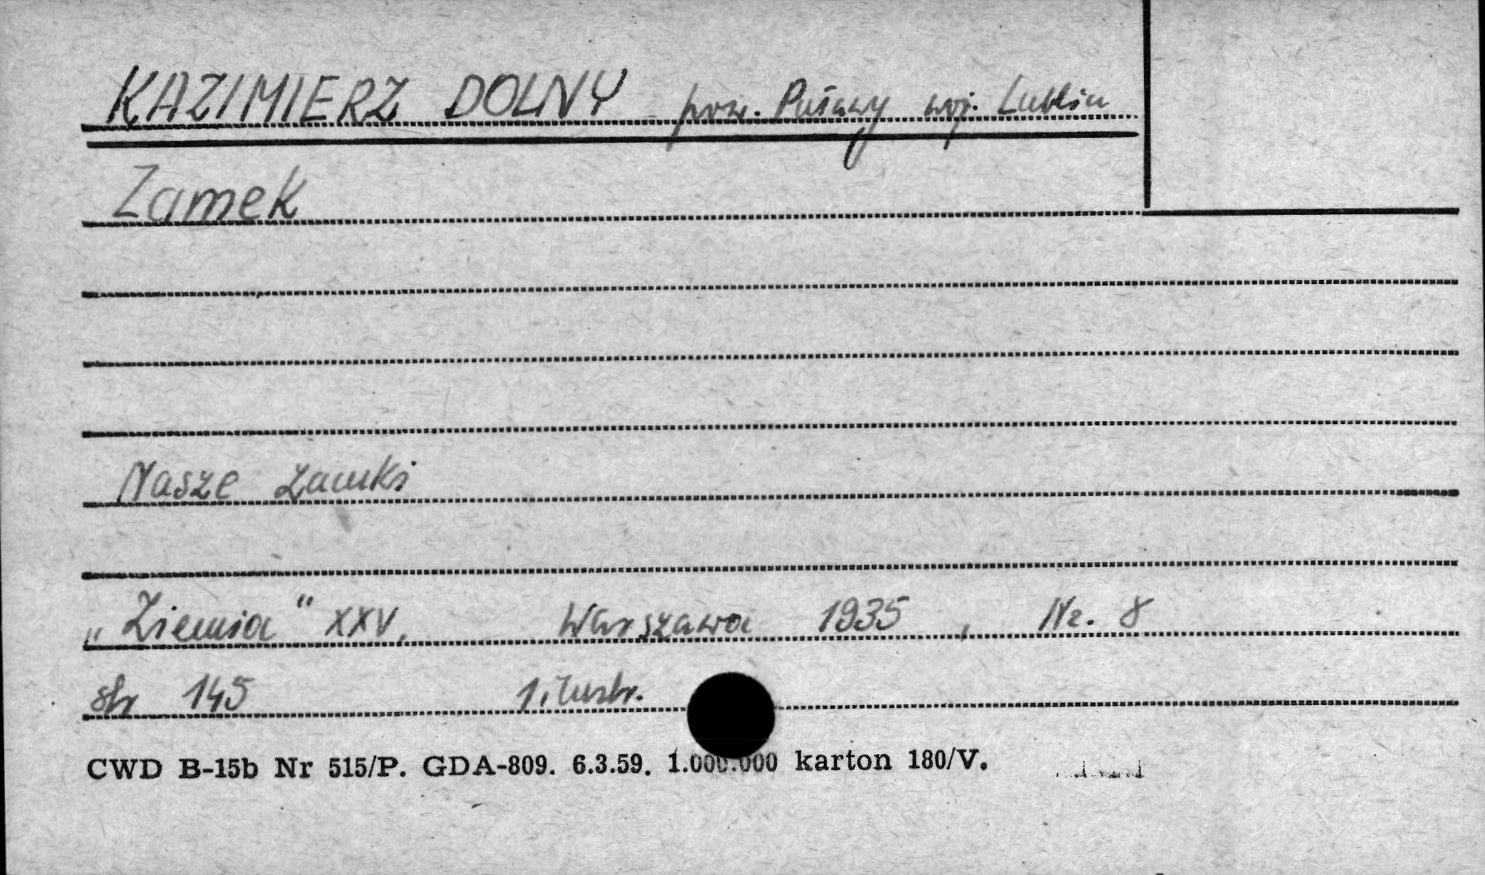 KAZIMIERZ DOLNY pow. Puławy woj. Lublin
Zamek
Nasze zamki
„Ziemia" XXV, Warszawa 1935, Nr. 8
str 145 1 ilustr.
CWD B-15b Nr 515/P. GDA-809. 6.3.59. 1.000.000 karton 180/V.